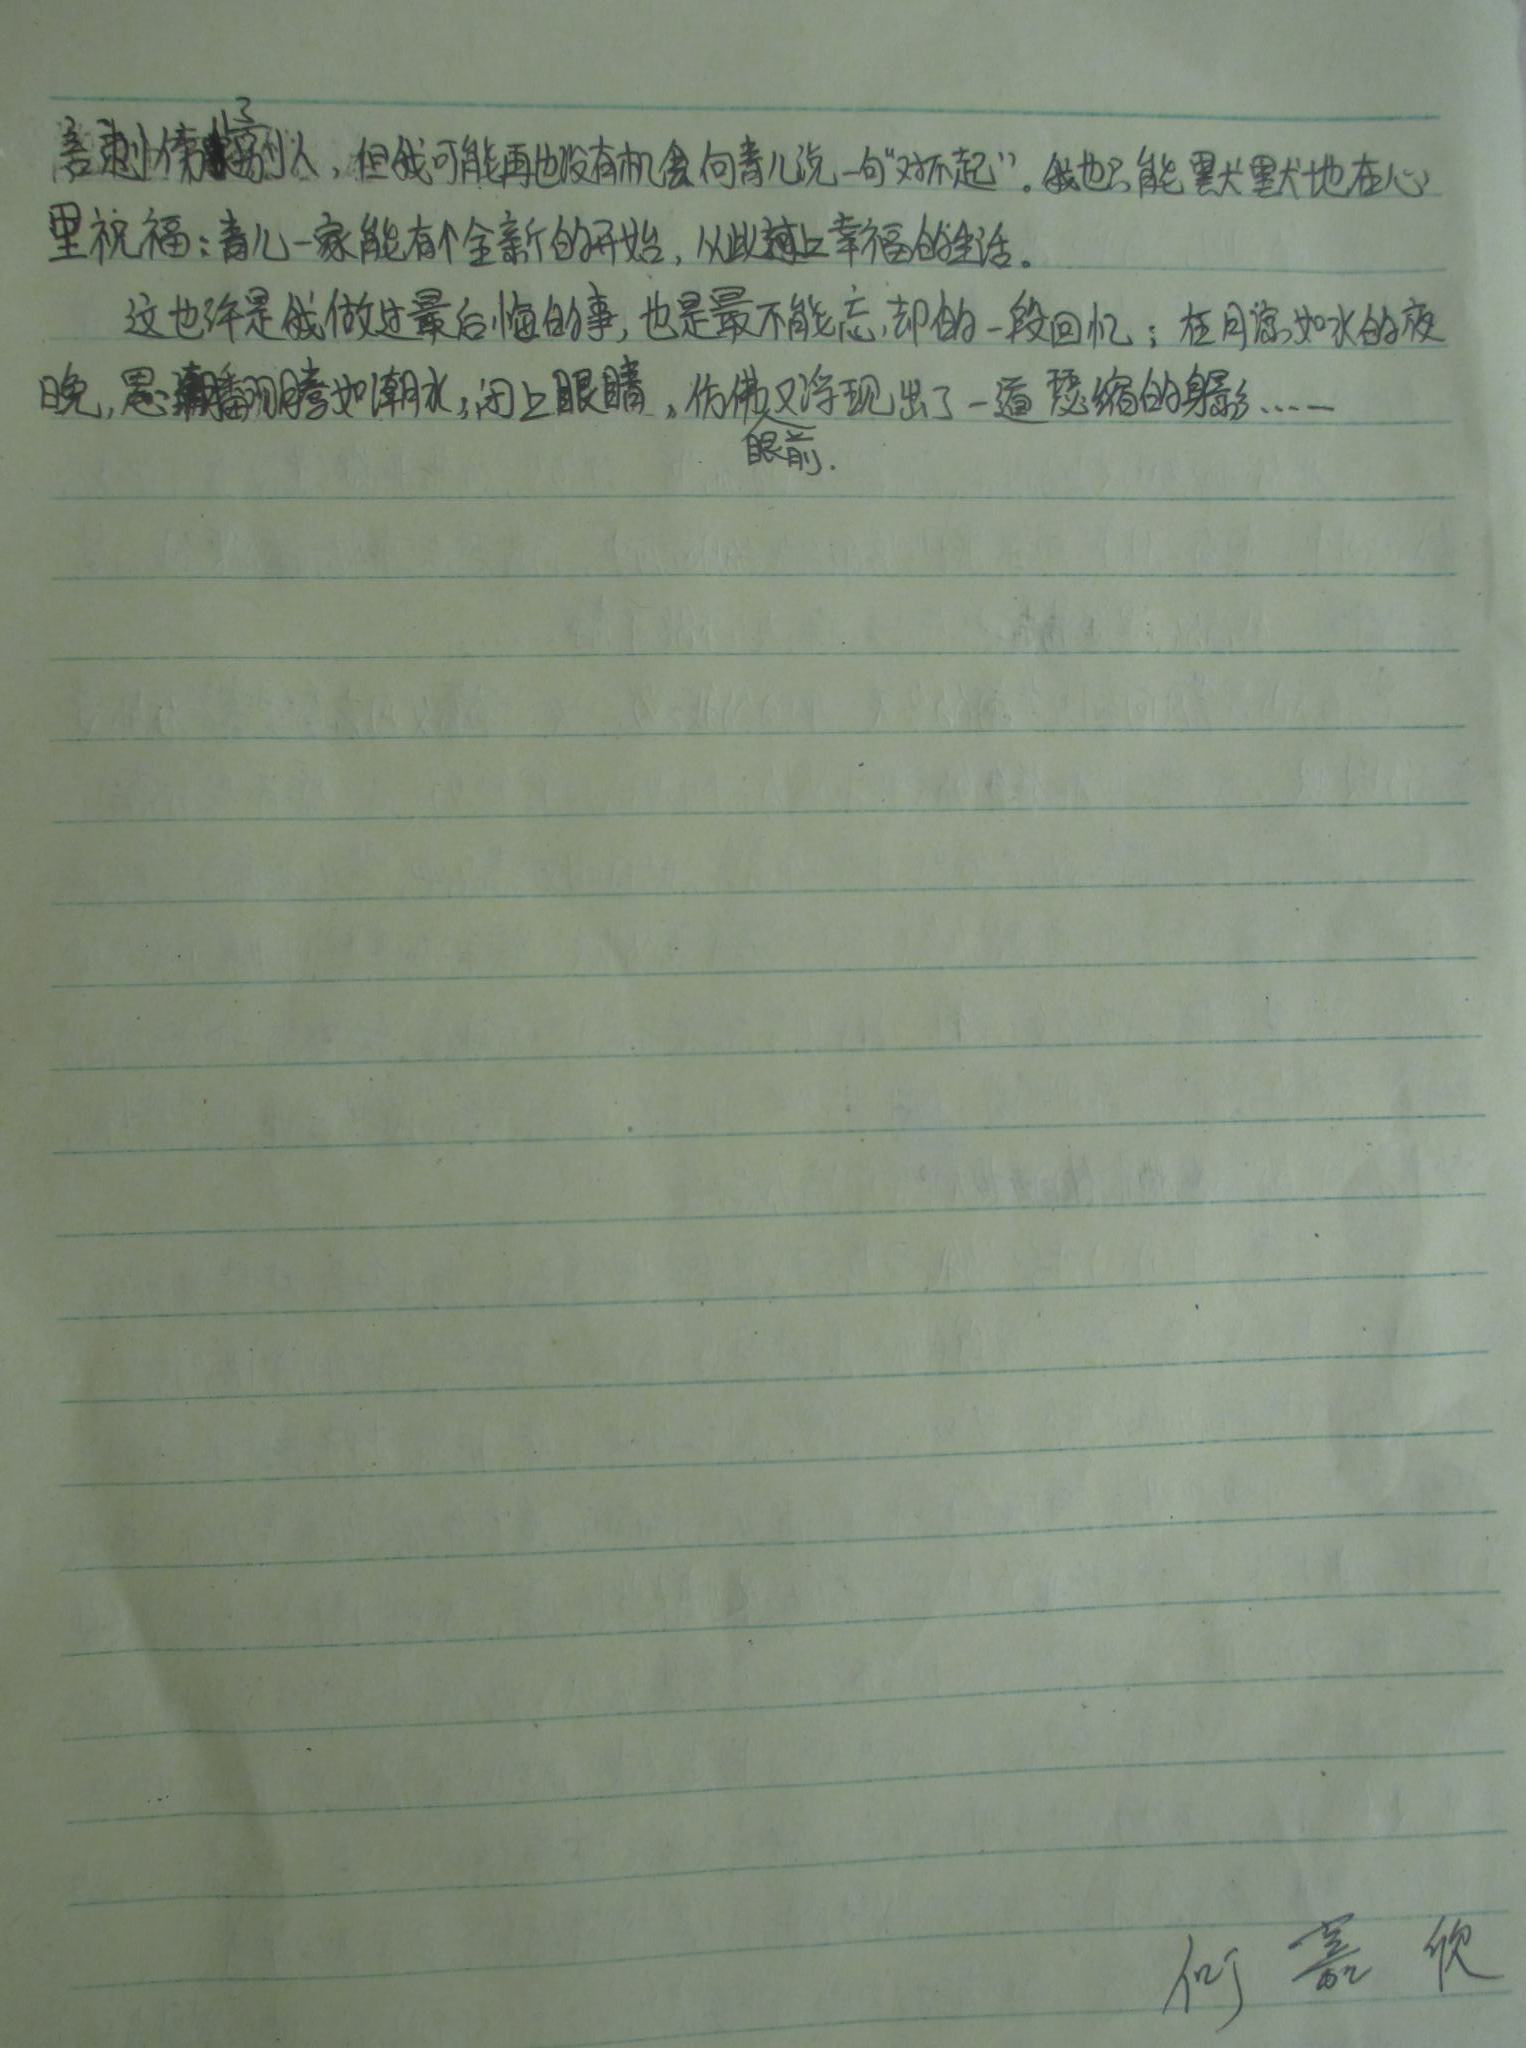 言刺伤了别人，但我可能再也没有机会向青儿说一句“对不起”。我也只能默默地在心
里祝福：青儿一家能有个全新的开始，从此过上幸福的生活。
这也许是我做过最后悔的事，也是最不能忘却的一段回忆；在月凉如水的夜
晚，思潮翻腾如潮水，闭上眼睛，仿佛眼前又浮现出了一道瑟缩的身影……
何嘉欣